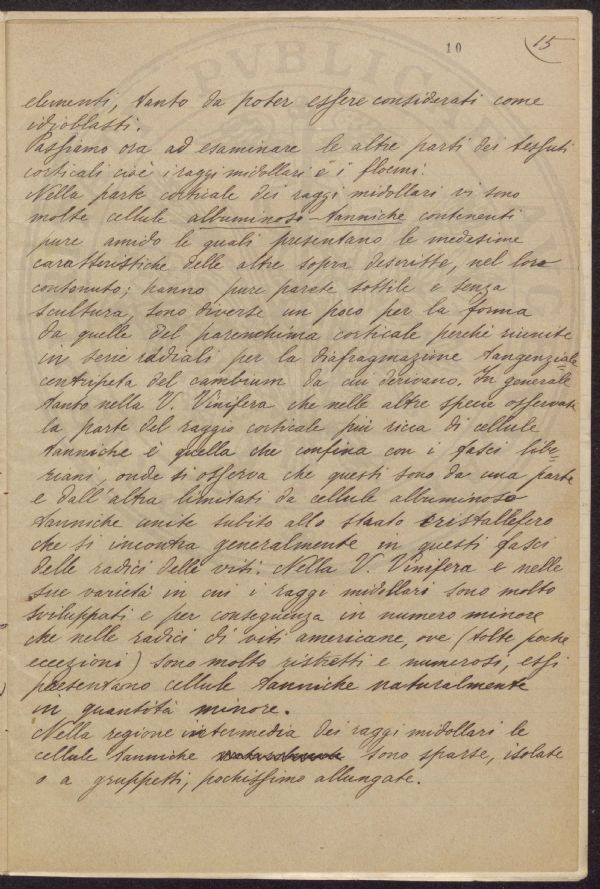 10
15
PVBLICA
elementi, tanto da poter essere considerati come
idioblasti.
Passiamo ora ad esaminare le altre parti dei tessuti
corticali cioè i raggi midollari e i floemi.
Nella parte corticale dei raggi midollari vi sono
molte cellule albuminoso-tanniche contenenti
pure amido le quali presentano le medesime
caratteristiche delle altre sopra descritte, nel loro
contenuto; hanno pure parete sottile e senza
scultura, sono diverse un poco per la forma
da quelle del parenchima corticale perché riunite
in serie radiali per la diafragmazione tangenziale
centripeta del cambium da cui derivano. In generale
tanto nella V. Vinifera che nelle altre specie osservate
la parte del raggio corticale più ricca di cellule
tanniche è quella che confina con i fasci libe-
riani, onde si osserva che questi sono da una parte
e dall'altra limitati da cellule albuminoso
tanniche unite subito allo strato cristallifero
che si incontra generalmente in questi fasci
delle radici delle viti. Nella V. Vinifera e nelle
sue varietà in cui i raggi midollari sono molto
sviluppati e per conseguenza in numero minore
che nelle radici di viti americane, ove (tolte poche
eccezioni) sono molto ristretti e numerosi, essi
presentano cellule tanniche naturalmente
in quantità minore.
Nella regione intermedia dei raggi midollari le
cellule tanniche sono sparse, isolate
o a gruppetti, pochissimo allungate.